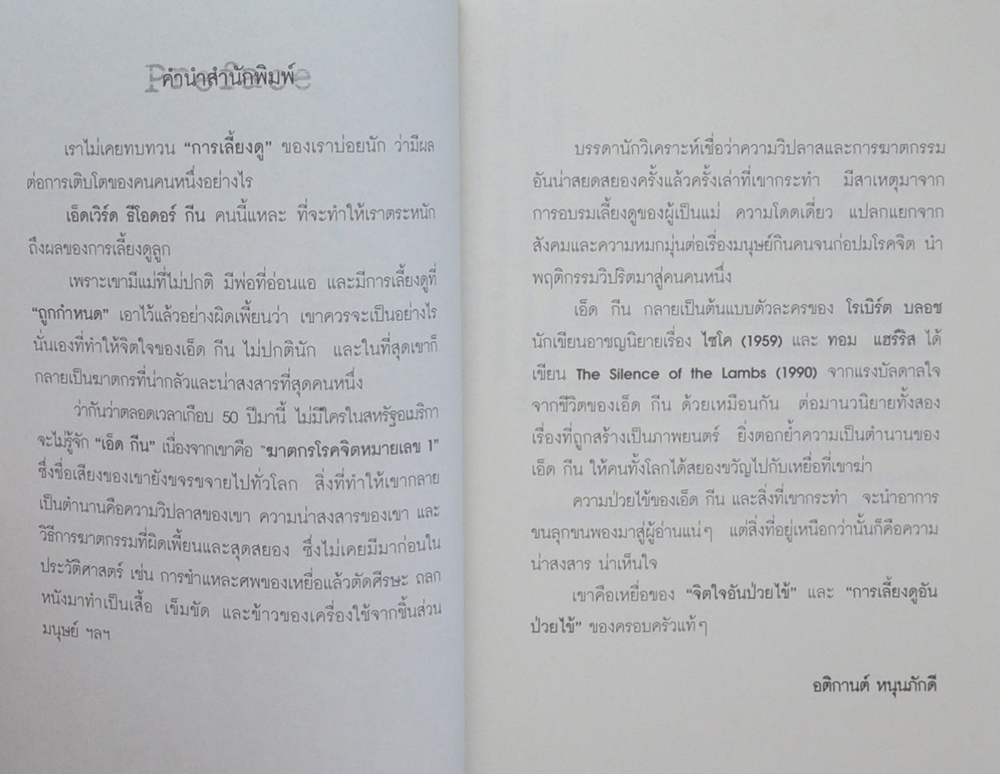 Preface
คำนำสำนักพิมพ์
เราไม่เคยทบทวน “การเลี้ยงดู” ของเราบ่อยนัก ว่ามีผล
ต่อการเติบโตของคนคนหนึ่งอย่างไร
เอ็ดเวิร์ด ธีโอดอร์ กีน คนนี้แหละ ที่จะทำให้เราตระหนัก
ถึงผลของการเลี้ยงดูลูก
เพราะเขามีแม่ที่ไม่ปกติ มีพ่อที่อ่อนแอ และมีการเลี้ยงดูที่
“ถูกกำหนด” เอาไว้แล้วอย่างผิดเพี้ยนว่า เขาควรจะเป็นอย่างไร
นั่นเองที่ทำให้จิตใจของเอ็ด กีน ไม่ปกตินัก และในที่สุดเขาก็
กลายเป็นฆาตกรที่น่ากลัวและน่าสงสารที่สุดคนหนึ่ง
ว่ากันว่าตลอดเวลาเกือบ 50 ปีมานี้ ไม่มีใครในสหรัฐอเมริกา
จะไม่รู้จัก “เอ็ด กีน” เนื่องจากเขาคือ “ฆาตกรโรคจิตหมายเลข 1”
ซึ่งชื่อเสียงของเขายังขจรขจายไปทั่วโลก สิ่งที่ทำให้เขากลาย
เป็นตำนานคือความวิปลาสของเขา ความน่าสงสารของเขา และ
วิธีการฆาตกรรมที่ผิดเพี้ยนและสุดสยอง ซึ่งไม่เคยมีมาก่อนใน
ประวัติศาสตร์ เช่น การชำแหละศพของเหยื่อแล้วตัดศีรษะ ถลก
หนังมาทำเป็นเสื้อ เข็มขัด และข้าวของเครื่องใช้จากชิ้นส่วน
มนุษย์ ฯลฯ
บรรดานักวิเคราะห์เชื่อว่าความวิปลาสและการฆาตกรรม
อันน่าสยดสยองครั้งแล้วครั้งเล่าที่เขากระทำ มีสาเหตุมาจาก
การอบรมเลี้ยงดูของผู้เป็นแม่ ความโดดเดี่ยว แปลกแยกจาก
สังคมและความหมกมุ่นต่อเรื่องมนุษย์กินคนจนก่อปมโรคจิต นำ
พฤติกรรมวิปริตมาสู่คนคนหนึ่ง
เอ็ด กีน กลายเป็นต้นแบบตัวละครของ โรเบิร์ต บลอช
นักเขียนอาชญนิยายเรื่อง ไซโค (1959) และ ทอม แฮร์ริส ได้
เขียน The Silence of the Lambs (1990) จากแรงบัลดาลใจ
จากชีวิตของเอ็ด กีน ด้วยเหมือนกัน ต่อมานวนิยายทั้งสอง
เรื่องที่ถูกสร้างเป็นภาพยนตร์ ยิ่งตอกย้ำความเป็นตำนานของ
เอ็ด กีน ให้คนทั้งโลกได้สยองขวัญไปกับเหยื่อที่เขาฆ่า
ความป่วยไข้ของเอ็ด กีน และสิ่งที่เขากระทำ จะนำอาการ
ขนลุกขนพองมาสู่ผู้อ่านแน่ๆ แต่สิ่งที่อยู่เหนือกว่านั้นก็คือความ
น่าสงสาร น่าเห็นใจ
เขาคือเหยื่อของ “จิตใจอันป่วยไข้” และ “การเลี้ยงดูอัน
ป่วยไข้” ของครอบครัวแท้ๆ
อติกานต์ หนุนภักดี